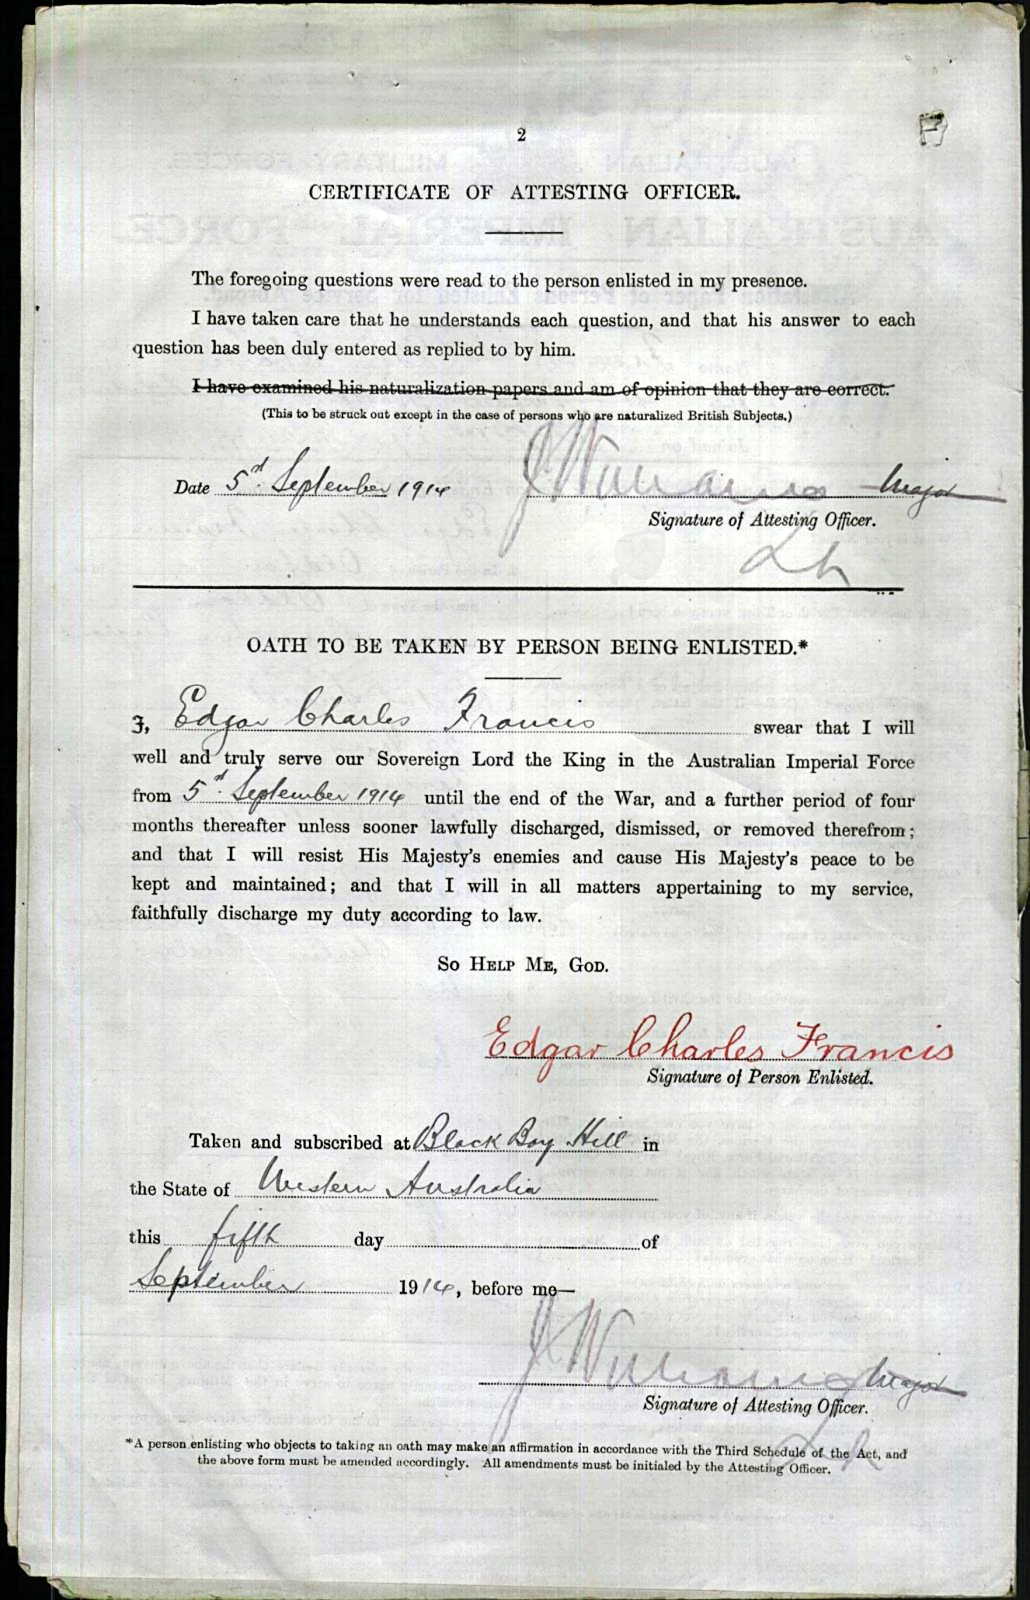 2
CERTIFICATE OF ATTESTING OFFICER.
The foregoing questions were read to the person enlisted in my presence.
I have taken care that he understands each question, and that his answer to each
question has been duly entered as replied to by him.
I have examined his naturalization papers and am of opinion that they are correct.
(This to be struck out except in the case of persons who are naturalized British Subjects.)
Date 5th September 1914 J Williams Major
Signature of Attesting Officer.
OATH TO BE TAKEN BY PERSON BEING ENLISTED.*
I, Edgar Charles Francis swear that I will
well and truly serve our Sovereign Lord the King in the Australian Imperial Force
from 5th September 1914 until the end of the War, and a further period of four
months thereafter unless sooner lawfully discharged, dismissed, or removed therefrom;
and that I will resist His Majesty's enemies and cause His Majesty's peace to be
kept and maintained; and that I will in all matters appertaining to my service,
faithfully discharge my duty according to law.
So Help Me, God.
Edgar Charles Francis
Signature of Person Enlisted.
Taken and subscribed at Black Boy Hill in
the State of Western Australia
this fifth day of
September 1914, before me—
J Williams Major
Signature of Attesting Officer.
*A person enlisting who objects to taking an oath may make an affirmation in accordance with the Third Schedule of the Act, and
the above form must be amended accordingly. All amendments must be initialed by the Attesting Officer.